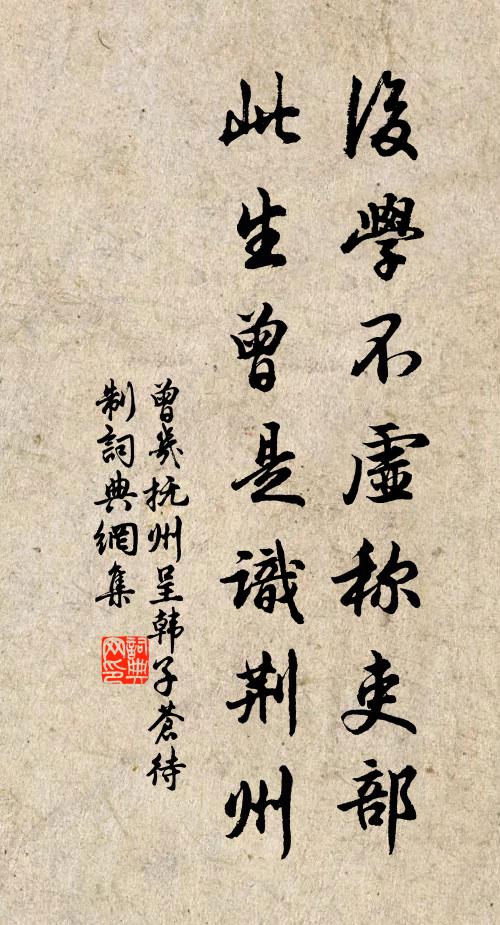 後學不虛称吏部
此生曾是識荆州
曾幾抚州呈韩子蒼待
制詞典網集
詞典
网印